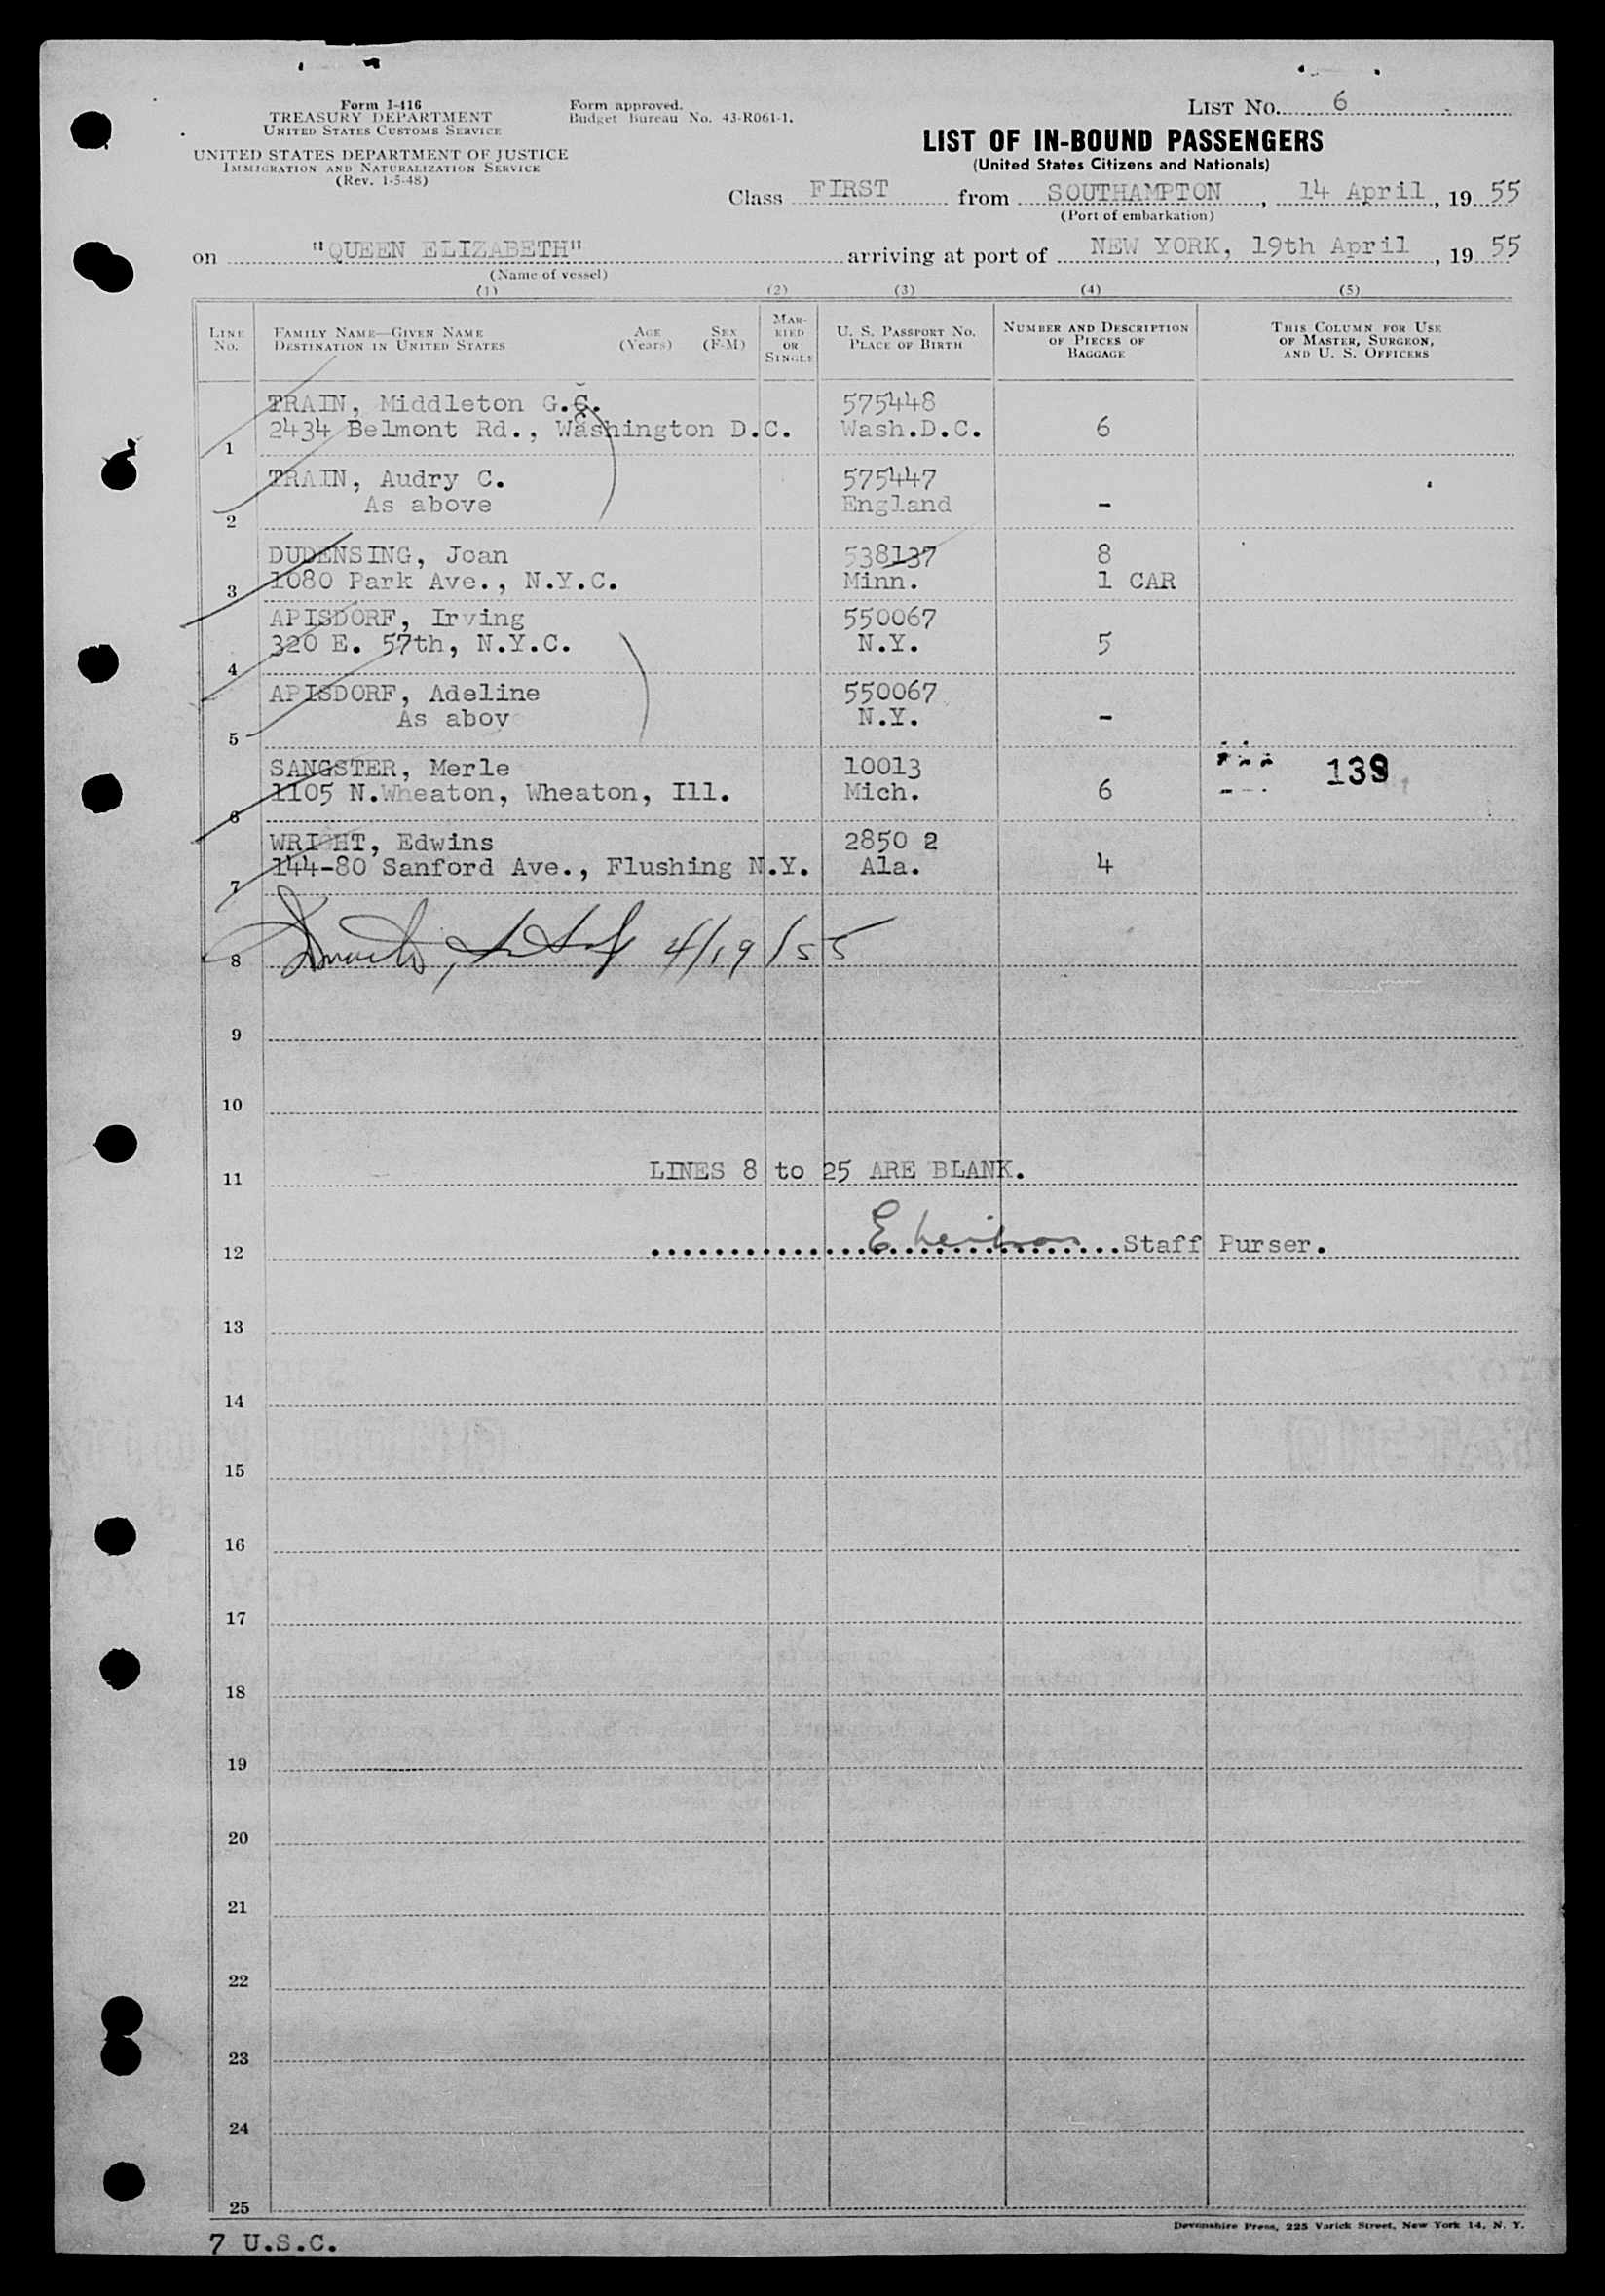 Form I-416
TREASURY DEPARTMENT
UNITED STATES CUSTOMS SERVICE
UNITED STATES DEPARTMENT OF JUSTICE
IMMIGRATION AND NATURALIZATION SERVICE
(Rev. 1-5-48)
Form approved.
Budget Bureau No. 43-R061-1.
LIST NO. 6
LIST OF IN-BOUND PASSENGERS
(United States Citizens and Nationals)
Class FIRST from SOUTHAMPTON, 14 April, 19 55
(Port of embarkation)
on "QUEEN ELIZABETH" arriving at port of NEW YORK, 19th April, 19 55
(Name of vessel)
(1) (2) (3) (4) (5)
LINE NO.
FAMILY NAME—GIVEN NAME
DESTINATION IN UNITED STATES
AGE (Years)
SEX (F-M)
MARRIED OR SINGLE
U. S. PASSPORT NO.
PLACE OF BIRTH
NUMBER AND DESCRIPTION OF PIECES OF BAGGAGE
THIS COLUMN FOR USE OF MASTER, SURGEON, AND U. S. OFFICERS
TRAIN, Middleton G.C. 575448
1 2434 Belmont Rd., Washington D.C. Wash.D.C. 6
TRAIN, Audry C. 575447
2 As above England -
DUDENSING, Joan 538137 8
3 1080 Park Ave., N.Y.C. Minn. 1 CAR
APISDORF, Irving 550067
4 320 E. 57th, N.Y.C. N.Y. 5
APISDORF, Adeline 550067
5 As abov N.Y. -
SANGSTER, Merle 10013 139
6 1105 N.Wheaton, Wheaton, Ill. Mich. 6
WRIGHT, Edwins 2850 2
7 144-80 Sanford Ave., Flushing N.Y. Ala. 4
8 4/19/55
9
10
11 LINES 8 to 25 ARE BLANK.
12 Staff Purser.
13
14
15
16
17
18
19
20
21
22
23
24
25
Devonshire Press, 225 Varick Street, New York 14, N. Y.
7 U.S.C.